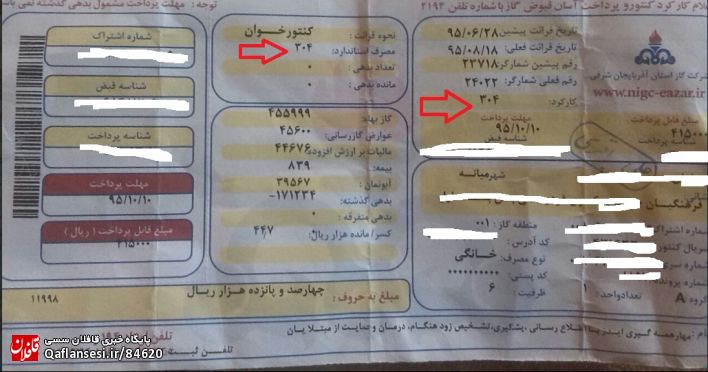 توجه : مهلت پرداخت مشمول بدهی نمی باشد
علام کارکرد کنتور و پرداخت آسان قبوض گاز با شماره تلفن ۲۱۹۴
تاریخ قرائت پیشین ۹۵/۰۶/۲۸
تاریخ قرائت فعلی: ۹۵/۰۸/۱۸
رقم پیشین شمارگر: ۲۳۷۱۸
رقم فعلی شمارگر: ۲۴۰۲۲
کارکرد: ۳۰۴
مهلت پرداخت
۹۵/۱۰/۱۰
شناسه قبض
شرکت گاز استان آذربایجان شرقی
www.nigc-eazar.ir
مبلغ قابل پرداخت
۴۱۵۰۰۰
نحوه قرائت: کنتورخوان
مصرف استاندارد: ۳۰۴
تعداد بدهی: ۰
مانده بدهی: ۰
گاز بهاء: ۴۵۵۹۹۹
عوارض گازرسانی: ۴۵۶۰۰
مالیات بر ارزش افزوده: ۴۴۶۷۶
بیمه: ۸۳۹
آبونمان: ۳۹۵۶۷
بدهی گذشته: -۱۷۱۲۳۴
بدهی متفرقه: ۰
کسر/مانده هزار ریال: ۰ ۴۴۷
شماره اشتراک
شناسه قبض
شناسه پرداخت
مهلت پرداخت
۹۵/۱۰/۱۰
مبلغ قابل پرداخت ( ریال )
۴۱۵۰۰۰
شهر میانه
فرهنگیان
شماره اشتراک
منطقه گاز: ۰۰۱
سریال کنتور
کد آدرس:
شماره سری
نوع مصرف: خانگی
شماره پرونده
کد پستی: ۰۰۰۰۰۰۰۰۰۰
گروه A
تعدادواحد: ۱
ظرفیت: ۶
مبلغ به حروف: چهارصد و پانزده هزار ریال
۱۱۹۹۸
مهار همه گیری ایدز با اطلاع رسانی ،پیشگیری،تشخیص زود هنگام، درمان و حمایت از مبتلایان
قافلان
پایگاه خبری قافلان سسی
Qaflansesi.ir/84620